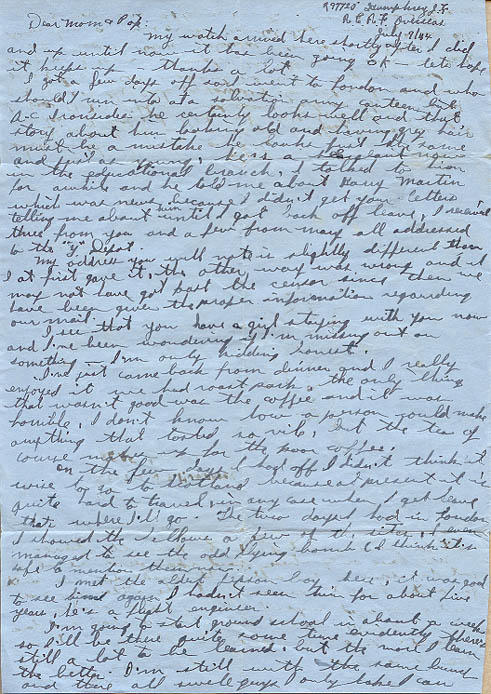 R99720 Humphrey J.F.
R.C.A.F. Overseas
July 9/44
Dear Mom & Pop:
My watch arrived here shortly after I did
and up until now it has been going OK – lets hope
it keeps up thanks a lot.
I got a few days off so I went to London and who
should I run into at a salvation army canteen but
A-C Ironsides he certainly looks well and that
story about him looking old and having grey hair
must be a mistake he looks just the same
and just as young, he's a sergeant now
in the educational branch, I talked to him
for awhile and he told me about Harry Martin
which was news because I didn't get your letters
telling me about him until I got back off leave, I received
three from you and a few from may all addressed
to the "Y" Depot.
My address you will note is slightly different than
I at first gave it, the other way was wrong and it
may not have got past the censor since then we
have been given the proper information regarding
our mail.
I see that you have a girl staying with you now
and I've been wondering if I'm missing out on
something – I'm only kidding honest.
I've just came back from dinner and I really
enjoyed it we had roast pork, the only thing
that wasn't good was the coffee and it was
horrible, I don't know how a person could make
anything that tasted so vile, but the tea of
course makes up for the poor coffee.
On the few days I had off I didn't think it
wise to go to because at present it is
quite hard to travel, in any case when I get leave
that's where I'll go The two days I had in London
I showed the fellows a few of the sites, I even
managed to see the odd flying bomb (I think it's
safe to mention them now.
I met the aldest person boy here, it was good
to see him again I hadn't seen him for about five
years, he's a flight engineer.
I'm going to start ground school in about a week
so I'll be there quite some time evidently there's
still a lot to be learned but the more I learn
the better. I'm still with the same bunch
and they all swell guys I only hope I can